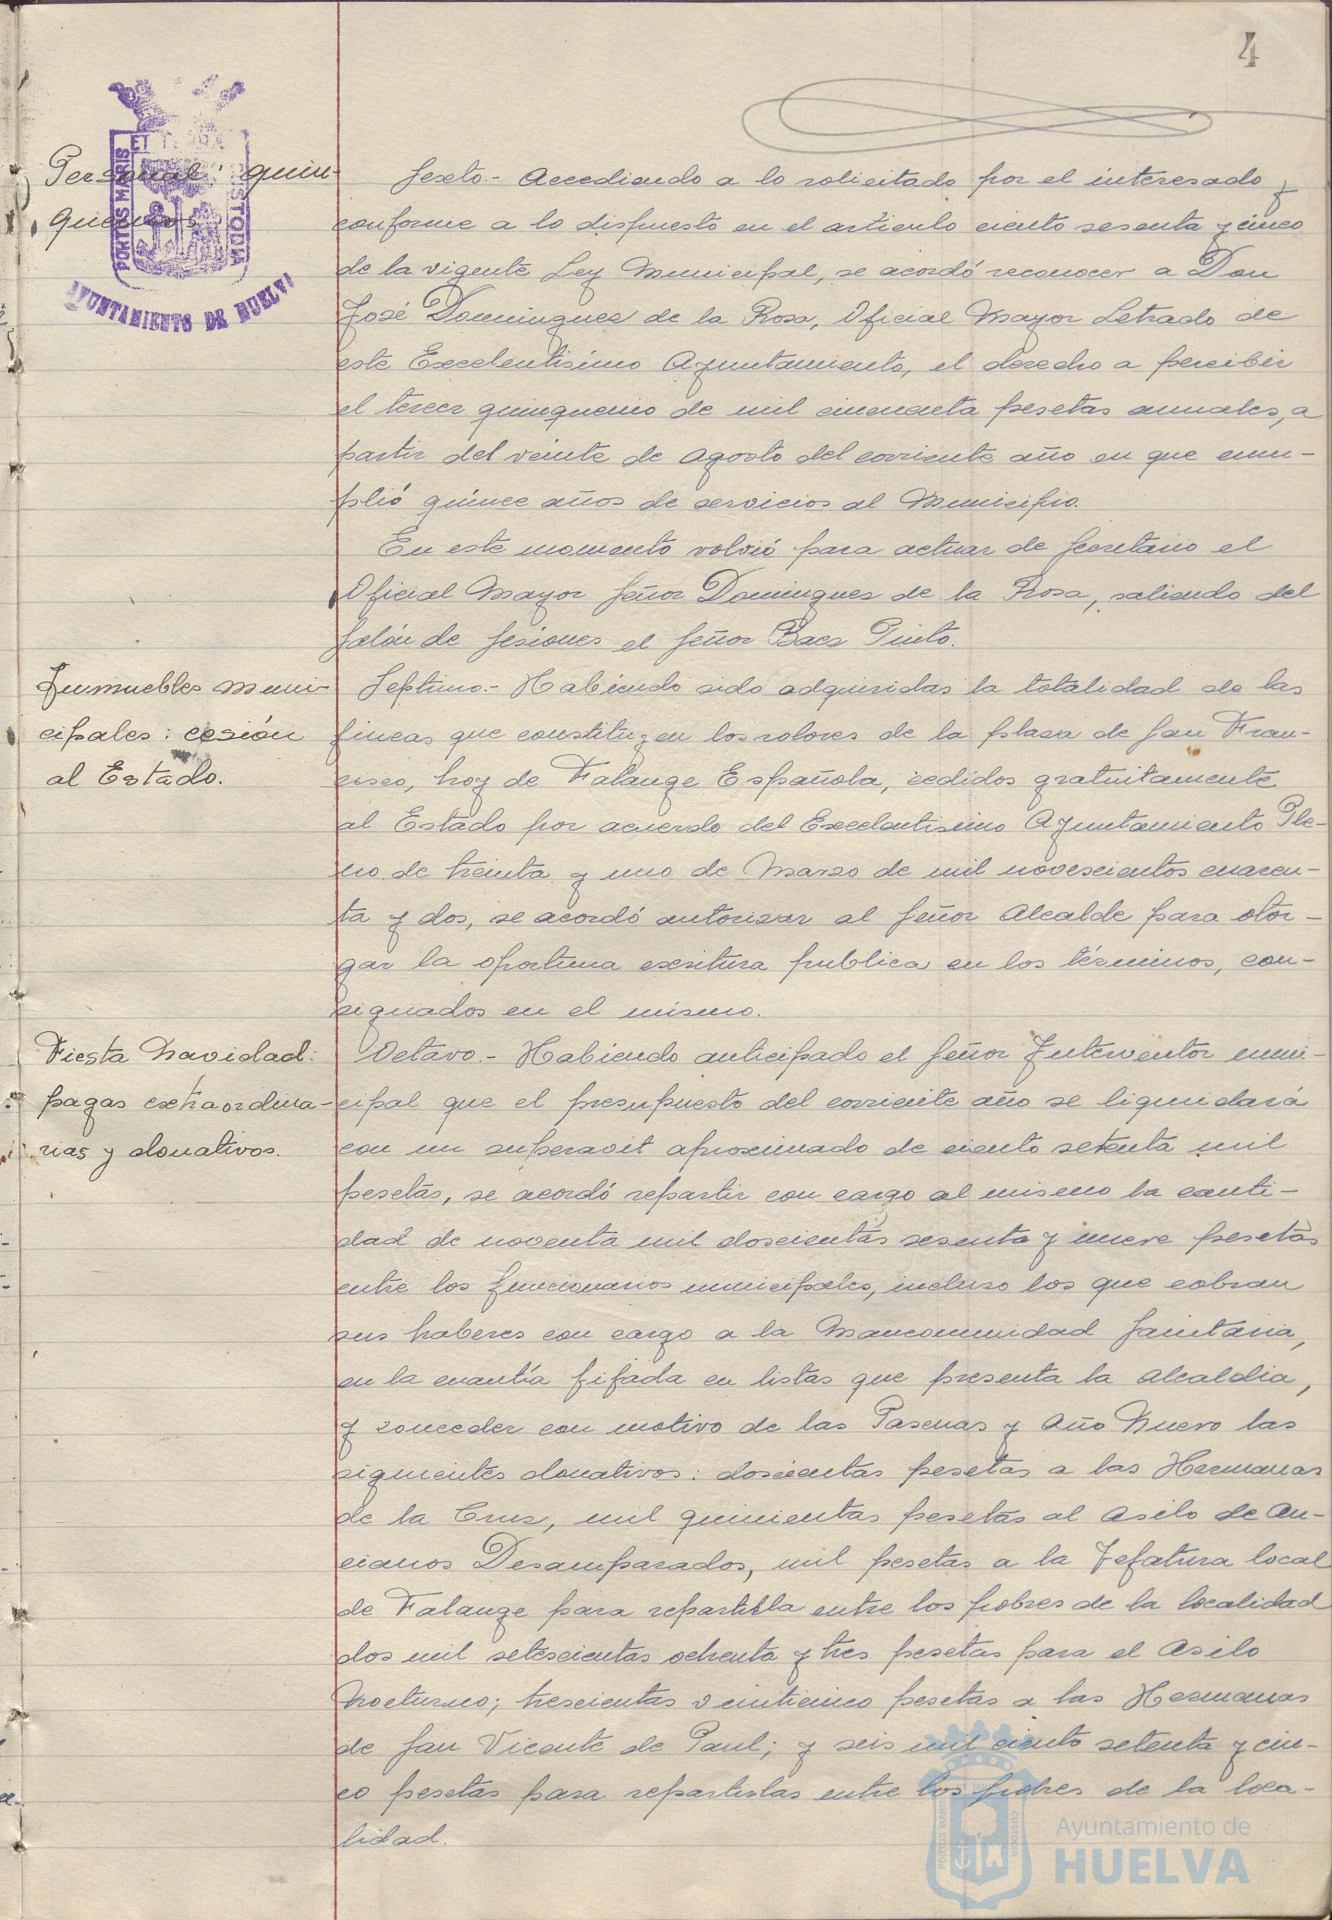 4
ET TERRA
PORTUS MARIS
CUSTODIA
AYUNTAMIENTO DE HUELVA
Personal: quin-
quenios.
Sexto.- Accediendo a lo solicitado por el interesado y
conforme a lo dispuesto en el articulo ciento sesenta y cinco
de la vigente Ley Municipal, se acordó reconocer a Don
José Dominguez de la Rosa, Oficial Mayor Letrado de
este Excelentisimo Ayuntamiento, el derecho a percibir
el tercer quinquenio de mil cincuenta pesetas anuales, a
partir del veinte de Agosto del corriente año en que cum-
plió quince años de servicios al Municipio.
En este momento volvió para actuar de Secretario el
Oficial Mayor Señor Dominguez de la Rosa, saliendo del
Salón de Sesiones el Señor Baez Pinto.
Inmuebles muni-
cipales: cesión
al Estado.
Septimo.- Habiendo sido adquiridas la totalidad de las
fincas que constituyen los solares de la plaza de San Fran-
cisco, hoy de Falange Española, cedidos gratuitamente
al Estado por acuerdo del Excelentisimo Ayuntamiento Ple-
no de treinta y uno de Marzo de mil novescientos cuaren-
ta y dos, se acordó autorizar al Señor Alcalde para otor-
gar la oportuna escritura publica en los términos, con-
signados en el mismo.
Fiesta Navidad:
pagas extraordina-
rias y donativos.
Octavo.- Habiendo anticipado el Señor Interventor muni-
cipal que el presupuesto del corriente año se liquidará
con un superavit aproximado de ciento setenta mil
pesetas, se acordó repartir con cargo al mismo la canti-
dad de noventa mil doscientas sesenta y nueve pesetas
entre los funcionarios municipales, incluso los que cobran
sus haberes con cargo a la Mancomunidad Sanitaria,
en la cuantía fijada en listas que presenta la Alcaldia,
y conceder con motivo de las Pascuas y Año Nuevo las
siguientes donativos: doscientas pesetas a las Hermanas
de la Cruz, mil quinientas pesetas al Asilo de An-
cianos Desamparados, mil pesetas a la Jefatura local
de Falange para repartirla entre los pobres de la localidad
dos mil setescientas ochenta y tres pesetas para el Asilo
Nocturno; trescientas veinticinco pesetas a las Hermanas
de San Vicente de Paul; y seis mil ciento setenta y cin-
co pesetas para repartirlas entre los pobres de la loca-
lidad.
Ayuntamiento de
HUELVA